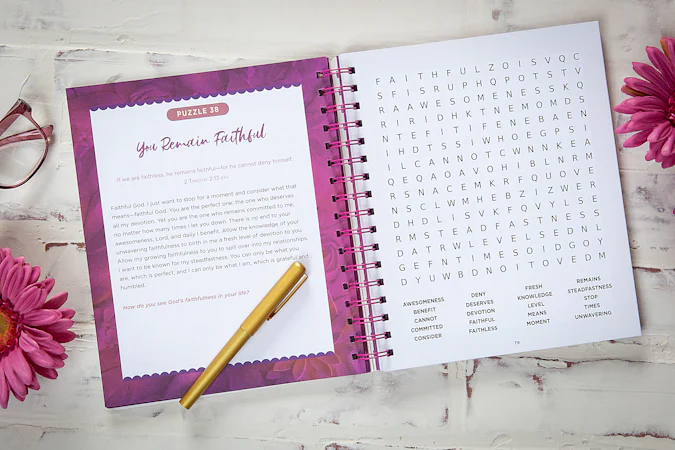 PUZZLE 38
You Remain Faithful
If we are faithless, he remains faithful—for he cannot deny himself.
2 Timothy 2:13
Faithful God, I just want to stop for a moment and consider what that
means—faithful God. You are the perfect one; the one who deserves
all my devotion. Yet you are the one who remains committed to me,
no matter how many times I let you down. There is no end to your
awesomeness, Lord, and daily I benefit. Allow the knowledge of your
unwavering faithfulness to birth in me a fresh level of devotion to you.
Allow my growing faithfulness to you to spill over into my relationships.
I want to be known for my steadfastness. You can only be what you
are, which is perfect, and I can only be what I am, which is grateful and
humbled.
How do you see God's faithfulness in your life?
F A I T H F U L Z O I S V Q C
S F I S R U P H Q P O T S T V
R A A W E S O M E N E S S K Q
R I R I D H K T N E M O M D S
N T E F I T I F E N E B A E N
I H D T S S I W H O E G P S I
I L C A N N O T C W N N K E A
Q E Q A O A V O H I B L N R M
R S N A C E M K R F Q U O V E
N S C L W M H E B Z I Z W E R
D H D L I S V K F Q V Y L S E
R M S T E A D F A S T N E S S
D A T R W L E V E L S E D N L
G E F N T I M E S O I D G O Y
D Y U W B D N O I T O V E D M
AWESOMENESS
BENEFIT
CANNOT
COMMITTED
CONSIDER
DENY
DESERVES
DEVOTION
FAITHFUL
FAITHLESS
FRESH
KNOWLEDGE
LEVEL
MEANS
MOMENT
REMAINS
STEADFASTNESS
STOP
TIMES
UNWAVERING
79